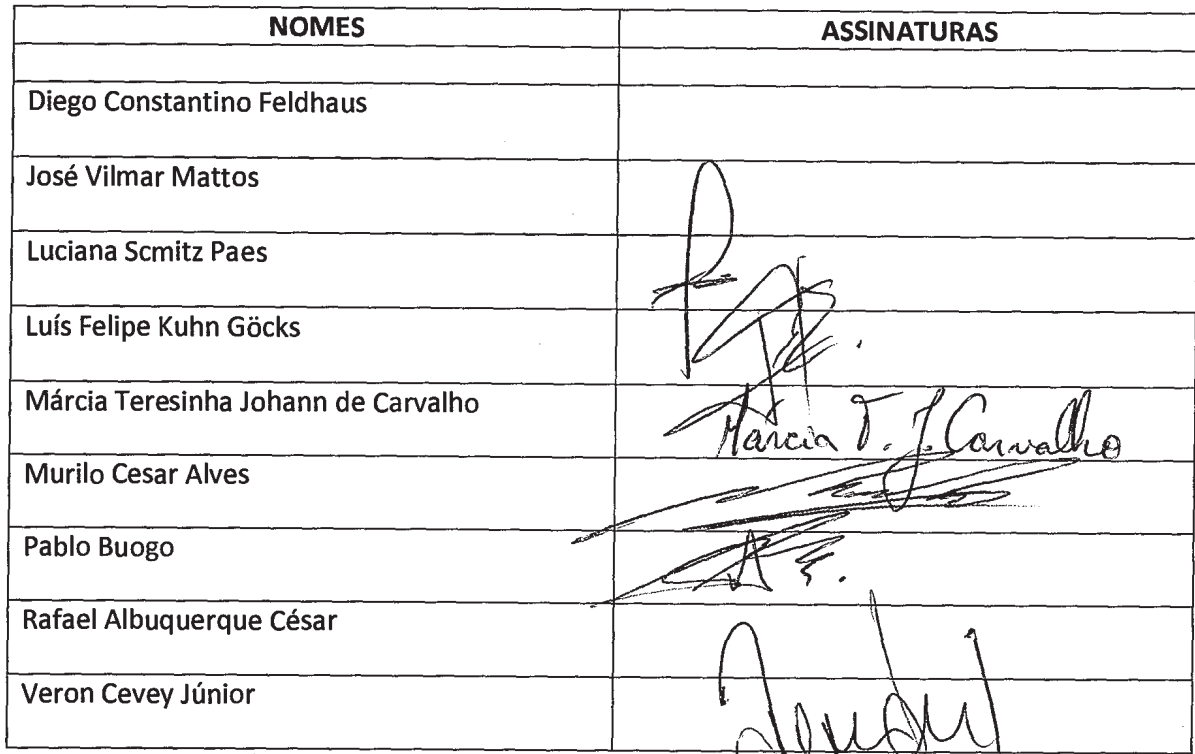 NOMES ASSINATURAS
Diego Constantino Feldhaus
José Vilmar Mattos
Luciana Scmitz Paes
Luís Felipe Kuhn Göcks
Márcia Teresinha Johann de Carvalho Marcia T. J. Carvalho
Murilo Cesar Alves
Pablo Buogo
Rafael Albuquerque César
Veron Cevey Júnior